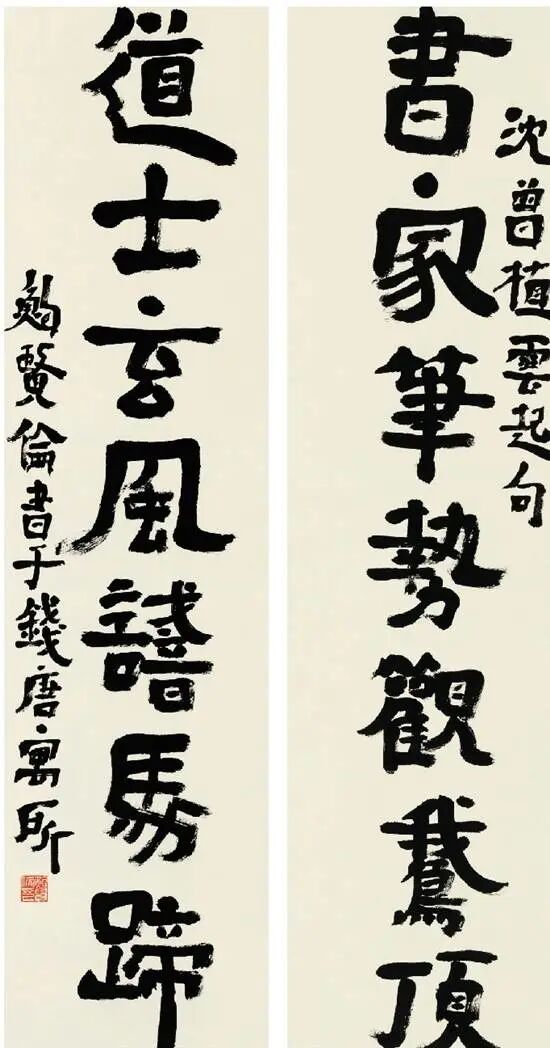 沈曾植雲起句
書家筆勢觀鵝頂
道士玄風馬蹄
鮑賢倫書于錢唐寓所